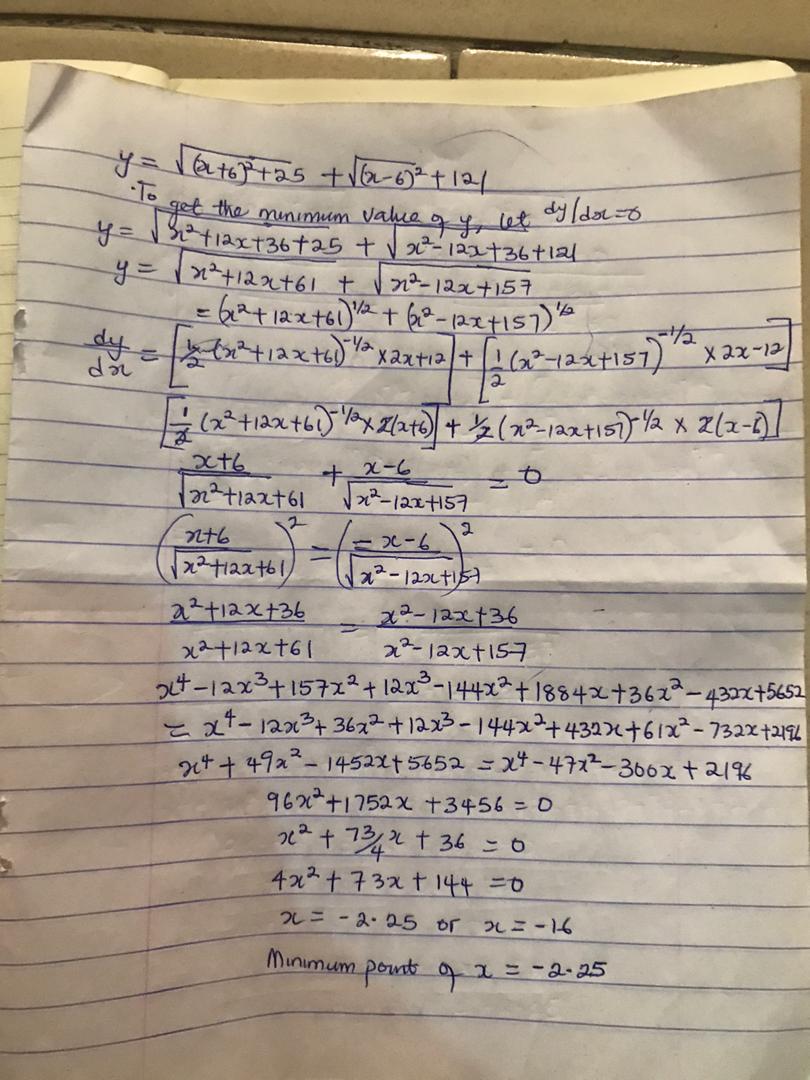 y = √(x+6)²+25 + √(x-6)²+121
·To get the minimum value of y, let dy/dx=0
y = √x²+12x+36+25 + √x²-12x+36+121
y = √x²+12x+61 + √x²-12x+157
= (x²+12x+61)^1/2 + (x²-12x+157)^1/2
dy/dx = [1/2(x²+12x+61)^-1/2 × 2x+12] + [1/2(x²-12x+157)^-1/2 × 2x-12]
[1/2(x²+12x+61)^-1/2 × 2(x+6)] + 1/2(x²-12x+157)^-1/2 × 2(x-6)]
x+6/√x²+12x+61 + x-6/√x²-12x+157 = 0
(x+6/√x²+12x+61)² = (-x-6/√x²-12x+157)²
x²+12x+36/x²+12x+61 = x²-12x+36/x²-12x+157
x⁴-12x³+157x²+12x³-144x²+1884x+36x²-432x+5652
= x⁴-12x³+36x²+12x³-144x²+432x+61x²-732x+2196
x⁴+49x²-1452x+5652 = x⁴-47x²-300x+2196
96x²+1752x+3456=0
x²+73/4x+36=0
4x²+73x+144=0
x=-2.25 or x=-16
Minimum point of x = -2.25